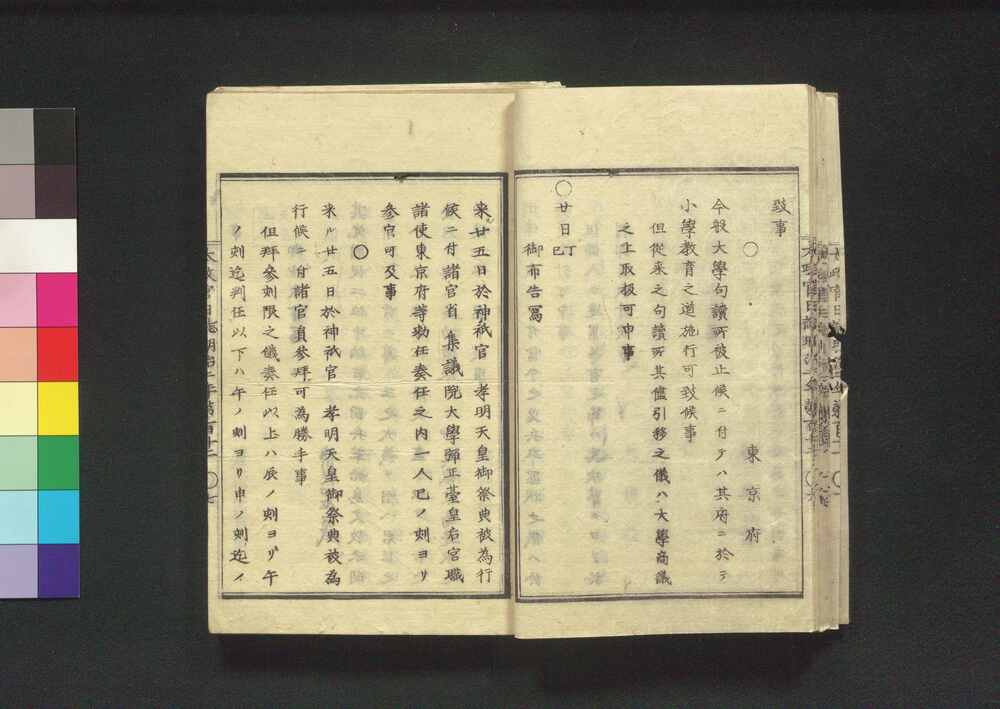 致事
○
東京府
今般大學句讀所被止候ニ付テハ其府ニ於テ
小學教育之道施行可致候事
但從来之句讀所其儘引移之儀ハ大學商議
之上取极可申事
○廿日丁巳
御布告寫
来ル廿五日於神祇官　孝明天皇御祭典被為行
候ニ付諸官省集議院大學彈正䑓皇后宮職
諸使東京府等勅任奏任之内一人巳ノ刻ヨリ
参官可及事
○
来ル廿五日於神祇官　孝明天皇御祭典被為
行候ニ付諸官員参拜可為勝手事
但拜参刻限之儀奏任以上ハ辰ノ刻ヨリ午
ノ刻迄判任以下ハ午ノ刻ヨリ申ノ刻迄ノ